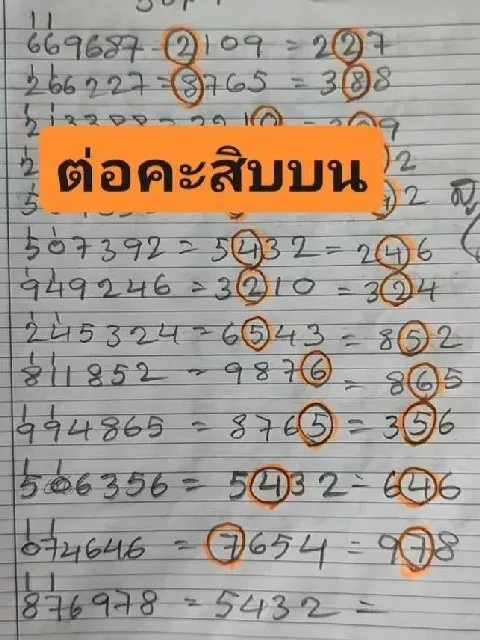 669687 = 2109 = 227
266227 = 8765 = 388
ต่อคะสิบบน
507392 = 5432 = 246
949246 = 3210 = 324
245324 = 6543 = 852
811852 = 9876 = 865
994865 = 8765 = 356
506356 = 5432 = 646
074646 = 7654 = 978
876978 = 5432 =